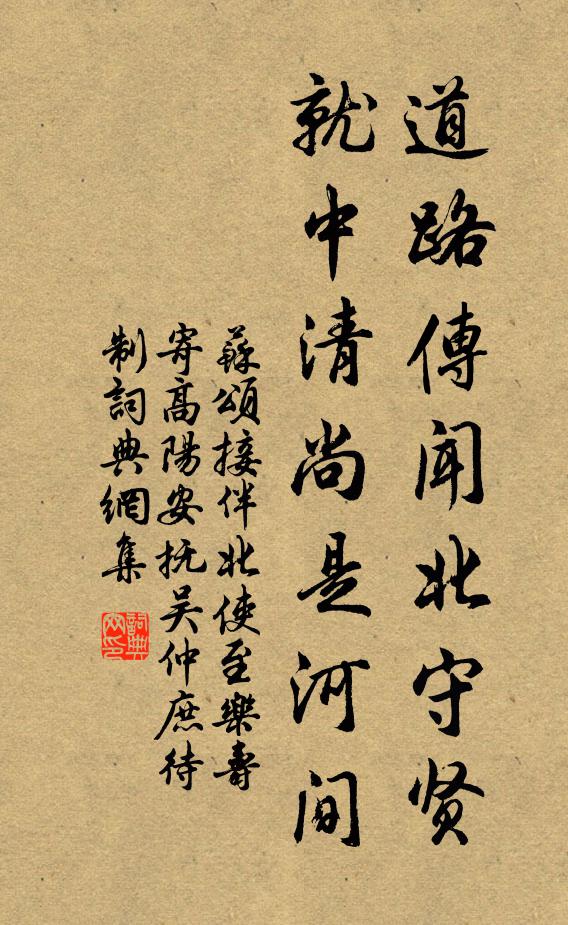 道路傳聞北守贤
就中清尚是河间
蘇頌接伴北使至樂壽
寄高陽安抚吴仲庶待
制詞典網集
詞典网印